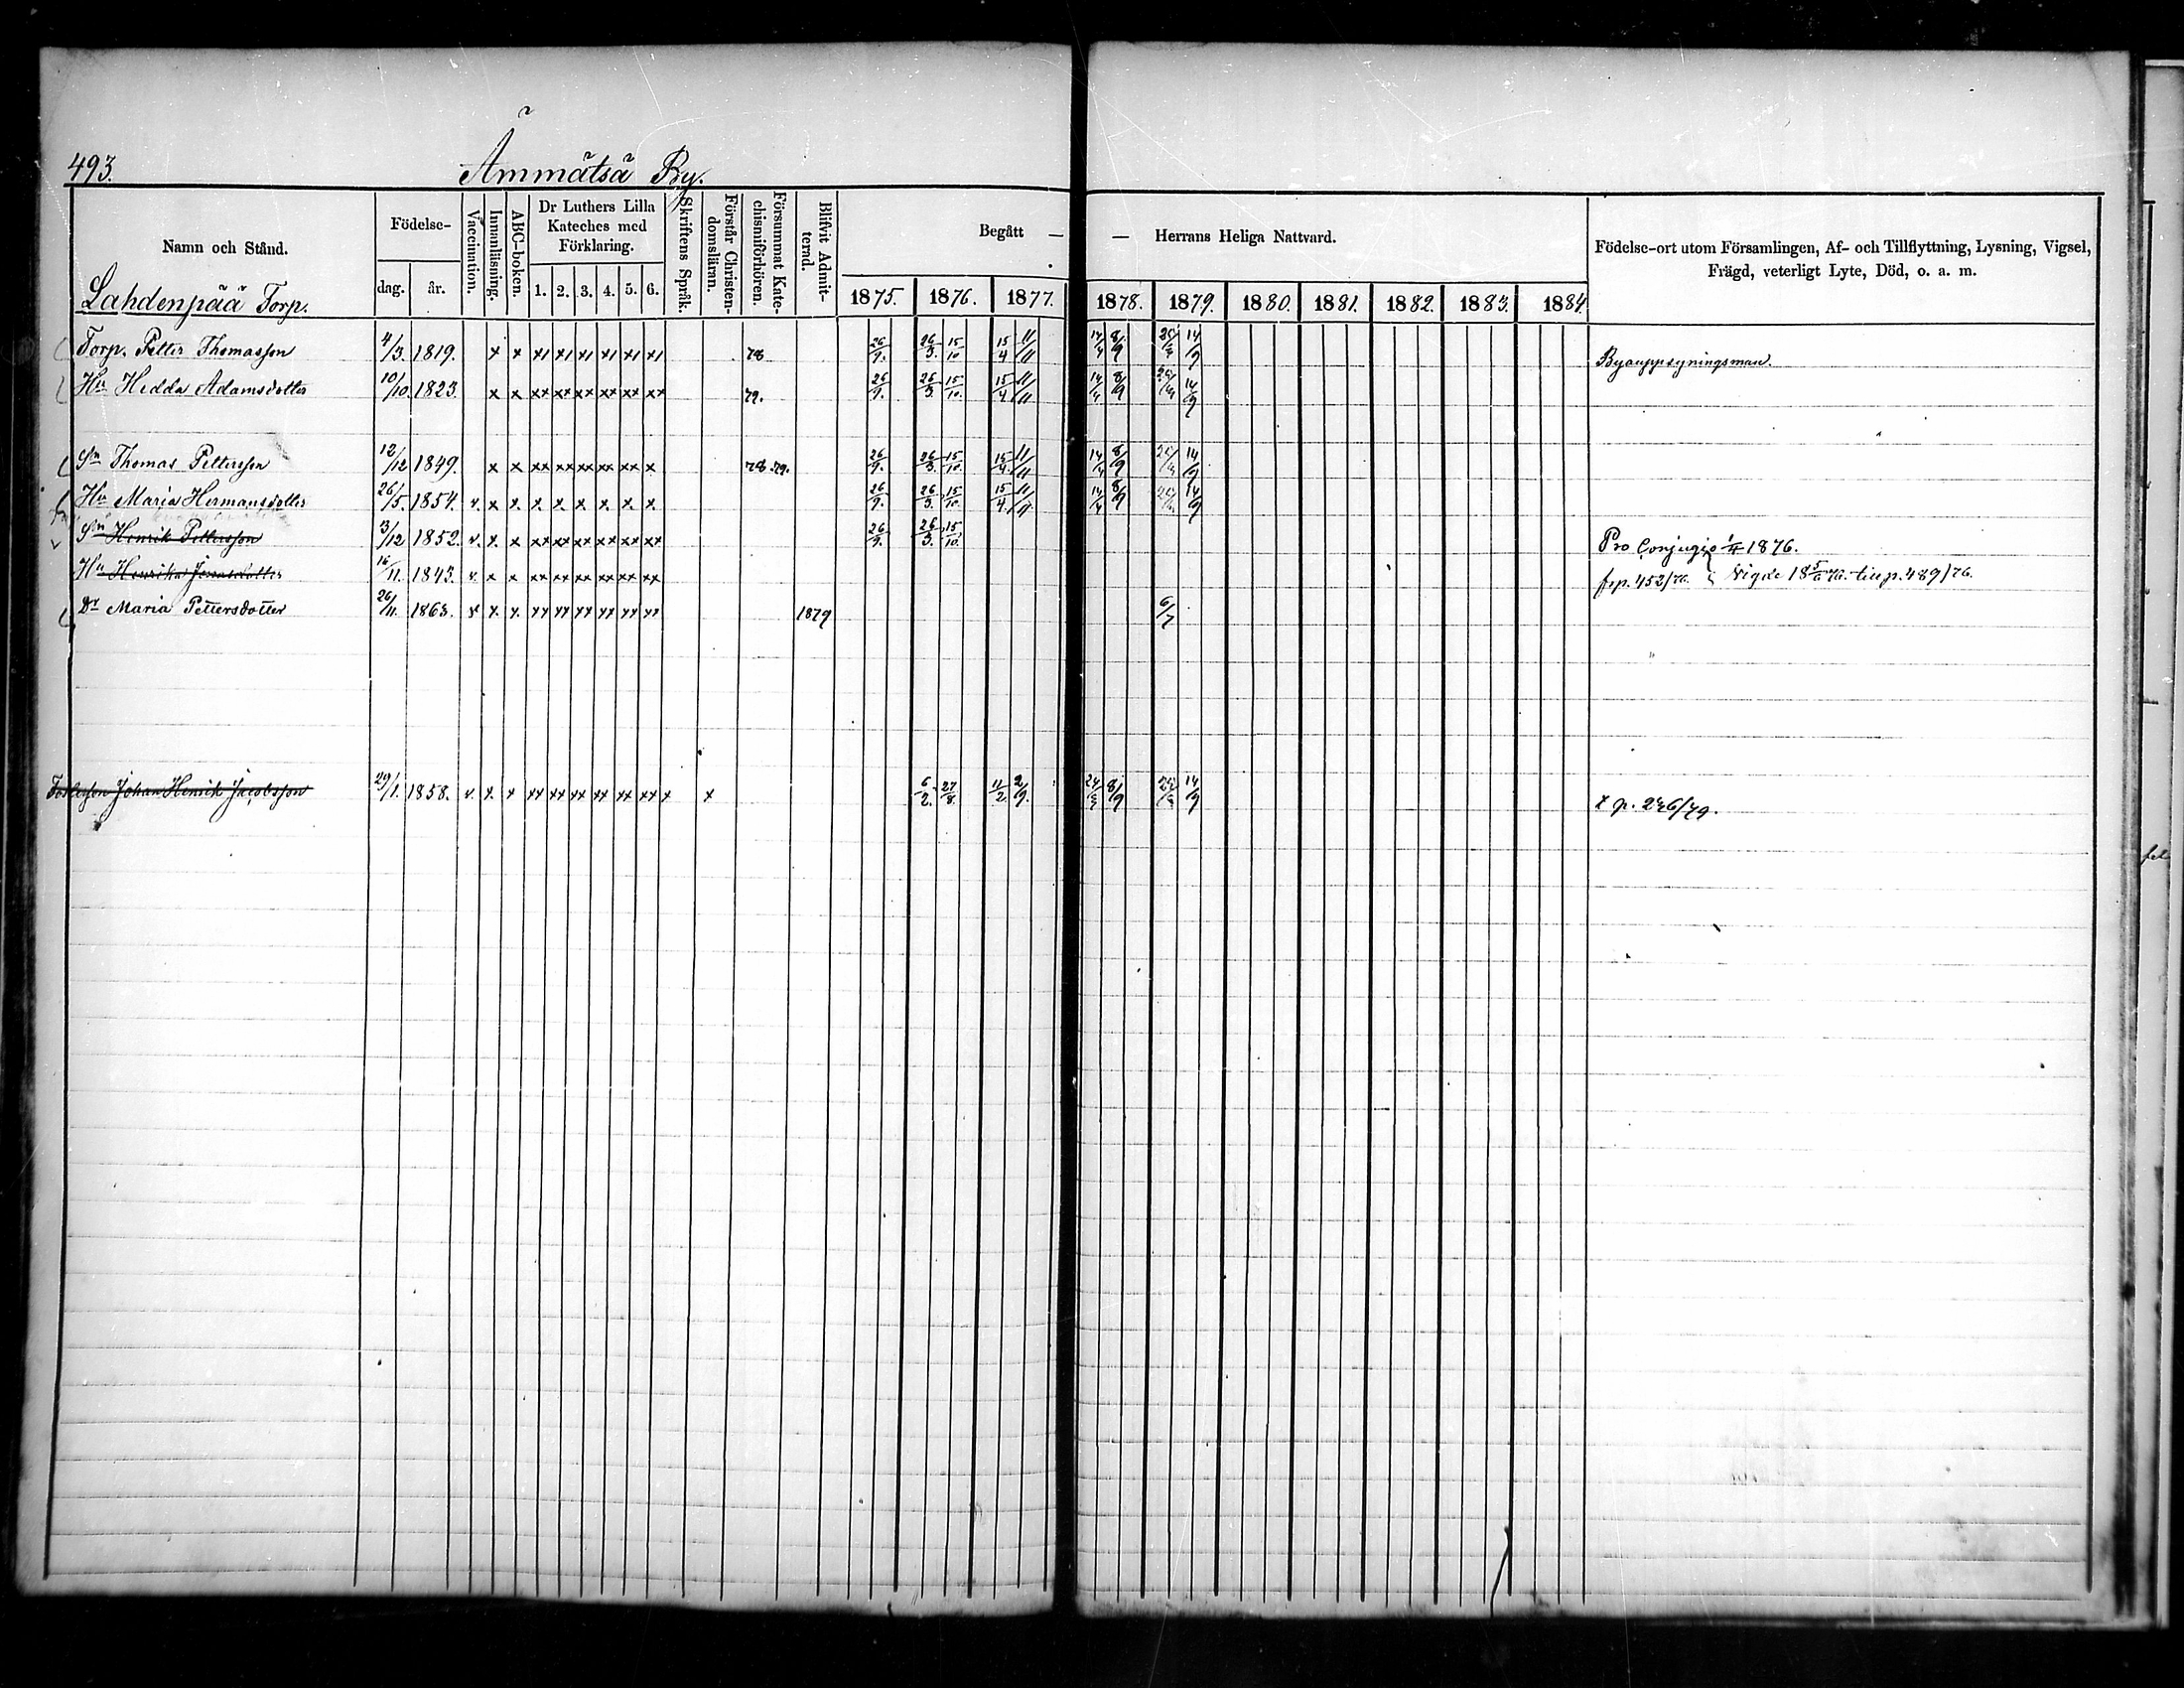 493.
Ämmätsä By.
Namn och Stånd.
Födelse-
dag.
år.
Vaccination.
Innanläsning.
ABC-boken.
Dr Luthers Lilla Kateches med Förklaring.
1. 2. 3. 4. 5. 6.
Skriftens Språk.
Förstår Christen-domsläran.
Försummat Kate-chismiförhören.
Blifvit Admit-terad.
Begått — — Herrans Heliga Nattvard.
1875. 1876. 1877. 1878. 1879. 1880. 1881. 1882. 1883. 1884.
Födelse-ort utom Församlingen, Af- och Tillflyttning, Lysning, Vigsel,
Frägd, veterligt Lyte, Död, o. a. m.
Lahdenpää Torp.
Torp. Petter Thomasson 4/3. 1819. x x x x x x x x 78 26/9. 26/3. 15/10 15/4 11/11 14/4 8/9 14/9 Byauppsyningsman.
Hu Hedda Adamsdotter 10/10. 1823. x x xx xx xx xx xx xx 79. 26/9. 26/3. 15/10. 15/4 11/11 14/4 8/9 14/9
Sn Thomas Pettersson 12/12 1849. x x xx xx xx xx xx x 78. 79. 26/9. 26/3. 15/10. 15/4. 11/11 14/4 8/9 14/9
Hu Maria Hermansdotter 26/5. 1854. v. x x x x x x x x 26/9. 26/3. 15/10. 15/4. 11/11 14/4 8/9 14/9
Sn Henrik Pettersson 3/12 1852. v. x x xx xx xx xx xx xx 26/9. 26/3. 15/10. Pro Conjugio 1/4 1876.
Hu Henrika Jonasdotter 16/11. 1843. v. x x xx xx xx xx xx xx frp. 452/76. Vigde 18 5/6 76. till p. 489/76.
Dr Maria Pettersdotter 26/11. 1863. v x x xx xx xx xx xx xx 1879 6/7
Johan Henrik Jacobsson 29/1. 1858. v. x x xx xx xx xx xx xx x x 6/2. 27/8. 11/2. 2/9. 24/3 8/9 14/9 p. 246/79.
fel